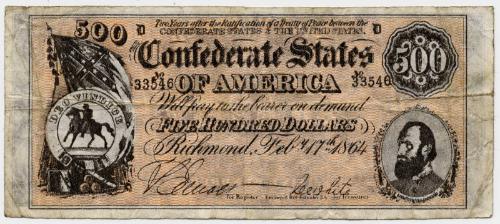 500 D
Two Years after the Ratification of a Treaty of Peace between the
CONFEDERATE STATES & THE UNITED STATES,
D
The
Confederate States
500
No 33546
No 33546
OF AMERICA
Will pay to the bearer on demand
FIVE HUNDRED DOLLARS
DEO VINDICE
Richmond, Feby 17th 1864
for Register
for Treasurer